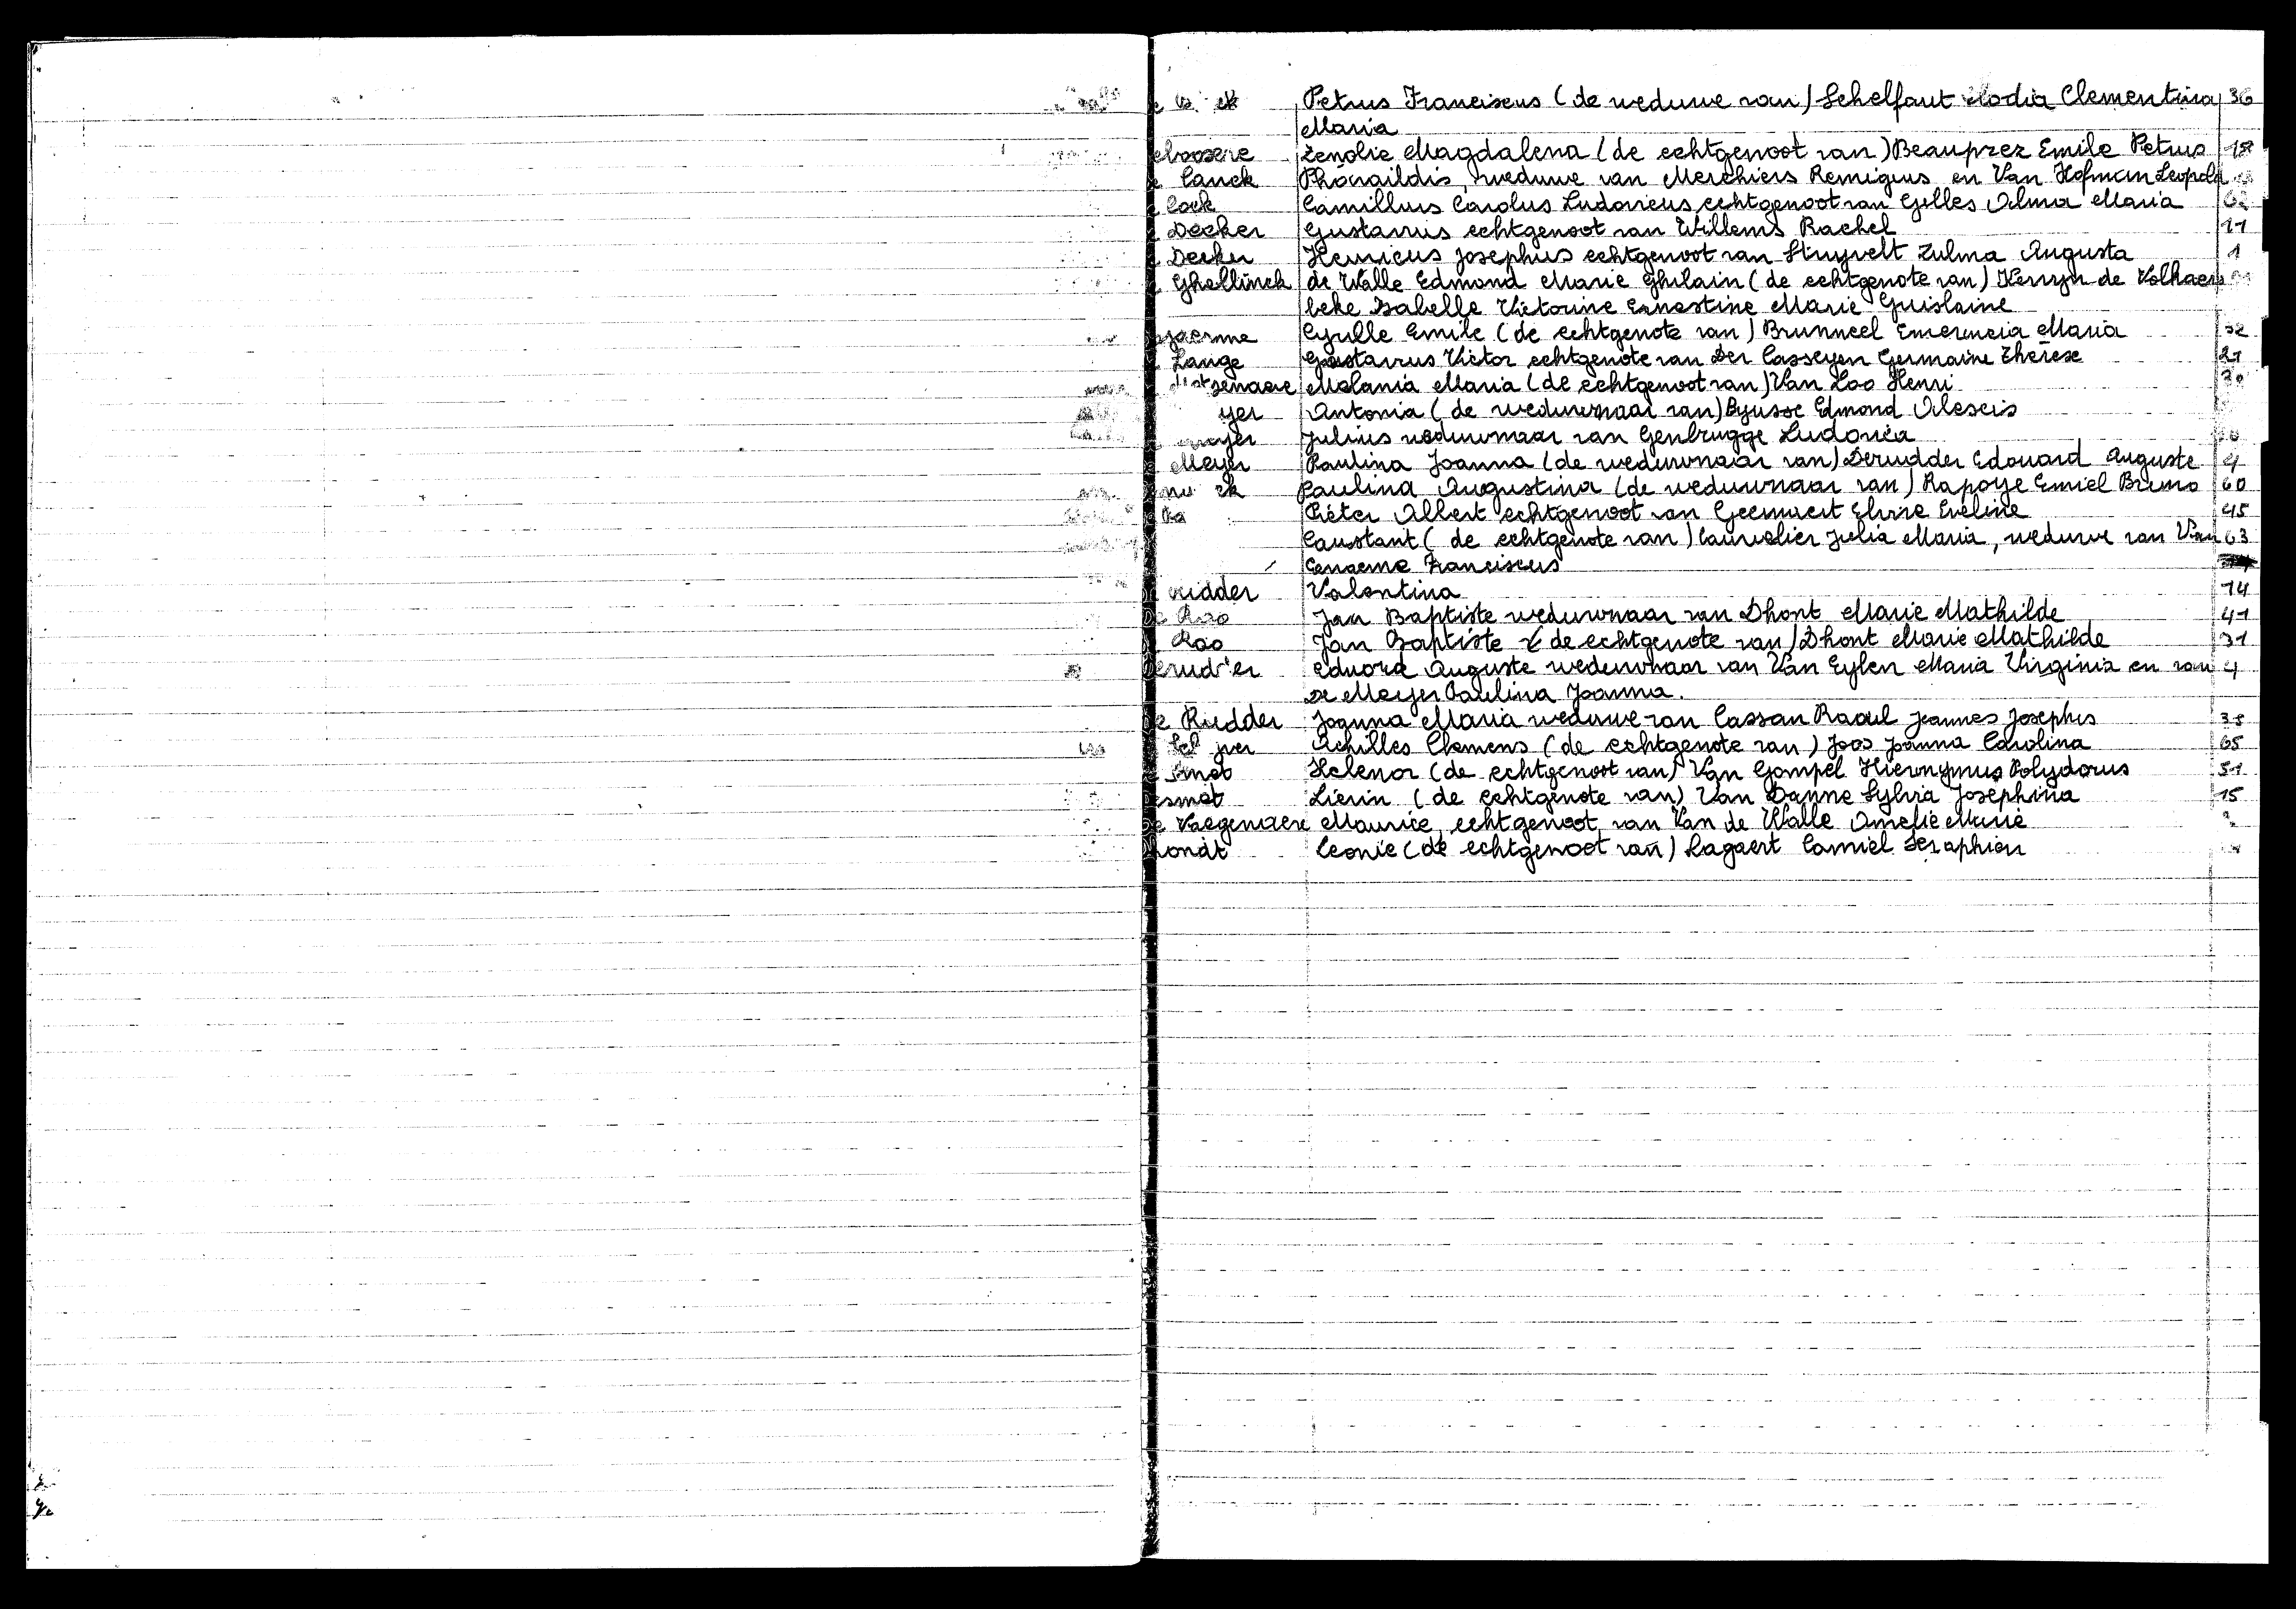 Petrus Franciscus (de weduwe van) Schelfaut Elodia Clementina 36
Maria
Zenolie Magdalena (de echtgenoot van) Beauprez Emile Petrus
Canck Pharaildis, weduwe van Merchiers Remigius en Van Hofman Leopold
Cock Camillus Carolus Ludovicus echtgenoot van Gilles Alma Maria 62
Decker Gustavus echtgenoot van Willems Rachel 11
Decker Henricus Josephus echtgenoot van Stuyvelt Zulma Augusta 1
Ghellinck de Walle Edmond Marie Ghilain (de echtgenote van) Kervyn de Volkaers
beke Isabelle Victorine Ernestine Marie Guislaine
Cyrille Emile (de echtgenote van) Brunneel Emerencia Maria 32
Lange Gustavus Victor echtgenote van Der Casseyen Germaine Therese 21
Melania Maria (de echtgenoot van) Van Loo Henri
Antonia (de weduwnaar van) Buysse Edmond Alexis
Julius weduwnaar van Genbrugge Ludovica
Meyer Paulina Joanna (de weduwnaar van) Derudder Edouard Auguste 4
Paulina Augustina (de weduwnaar van) Rapoye Emiel Bruno 60
Pieter Albert echtgenoot van Geernaert Elvire Eveline 45
Constant (de echtgenote van) Cauwelier Julia Maria, weduwe van Van 63
Franciscus
ridder Valentina 14
De Roo Jan Baptiste weduwnaar van Dhont Marie Mathilde 41
Roo Jan Baptiste (de echtgenote van) Dhont Marie Mathilde 31
Eduord Auguste weduwnaar van Van Eylen Maria Virginia en van 4
De Meyer Paulina Joanna.
De Rudder Joanna Maria weduwe van Cassan Raoul Joannes Josephus
Achilles Clemens (de echtgenote van) Joos Joanna Carolina 65
Smet Helena (de echtgenoot van) Van Gompel Hieronymus Polydorus 51
Desmet Lievin (de echtgenote van) Van Damme Sylvia Josephina 15
De Vaegenaere Maurice, echtgenoot van Van de Walle Amelie Marie
Dhondt Leonie (de echtgenoot van) Lagaert Camiel Seraphien